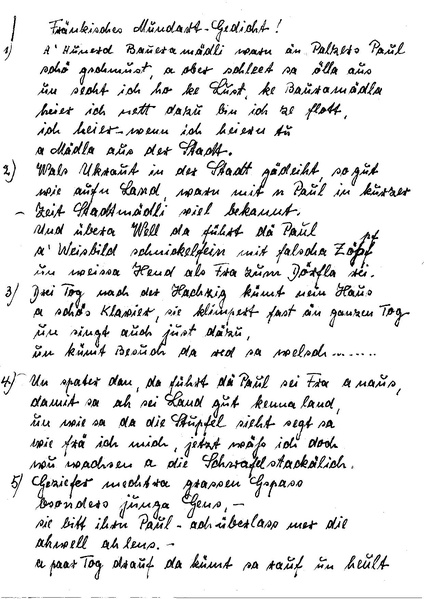 Fränkisches Mundart-Gedicht!
1) A' Hunerd Baueramädli warn än Paltzers Paul
schö gschmust, a ober schleet sa älla aus
un secht ich ho ke Lust, ke Bauramädla
heier ich nett dazu bin ich ze flott,
ich heier-wenn ich heiern tu
a Mädla aus der Stadt.
2) Wals Ukraut in der Stadt gädeiht, so gut
wie aufn Land, warn mit n Paul in kurzer
- Zeit Stadtmädli viel bekannt.
Und übera Well da führt dä Paul
a' Weisbild schnickelfein mit falscha Zöpf
un weissa Hend als Fra zum Dörfla rei.
3) Drei Tog nach der Hachzig kümt nein Haus
a schös Klavier, sie klimpert fast än ganzen Tog
un singt auch just däzu,
un kümt Besuch da red sa welsch........
4) Un spater dan, da führt dä Paul sei Fra anaus,
damit sa ah sei Land gut kenna land,
un wie sa da die Stupfel sieht segt sa
wie frä ich mich, jetzt wäß ich doch
wu wachsen a die Schwafelstackälich.
5) Geziefer mechtra grassen Gspass
bsonders junga Gens, -
sie bitt ihrn Paul - ach überlass mer die
ahwell ahlens. -
a paar Tog drauf da kümt sa rauf un heult